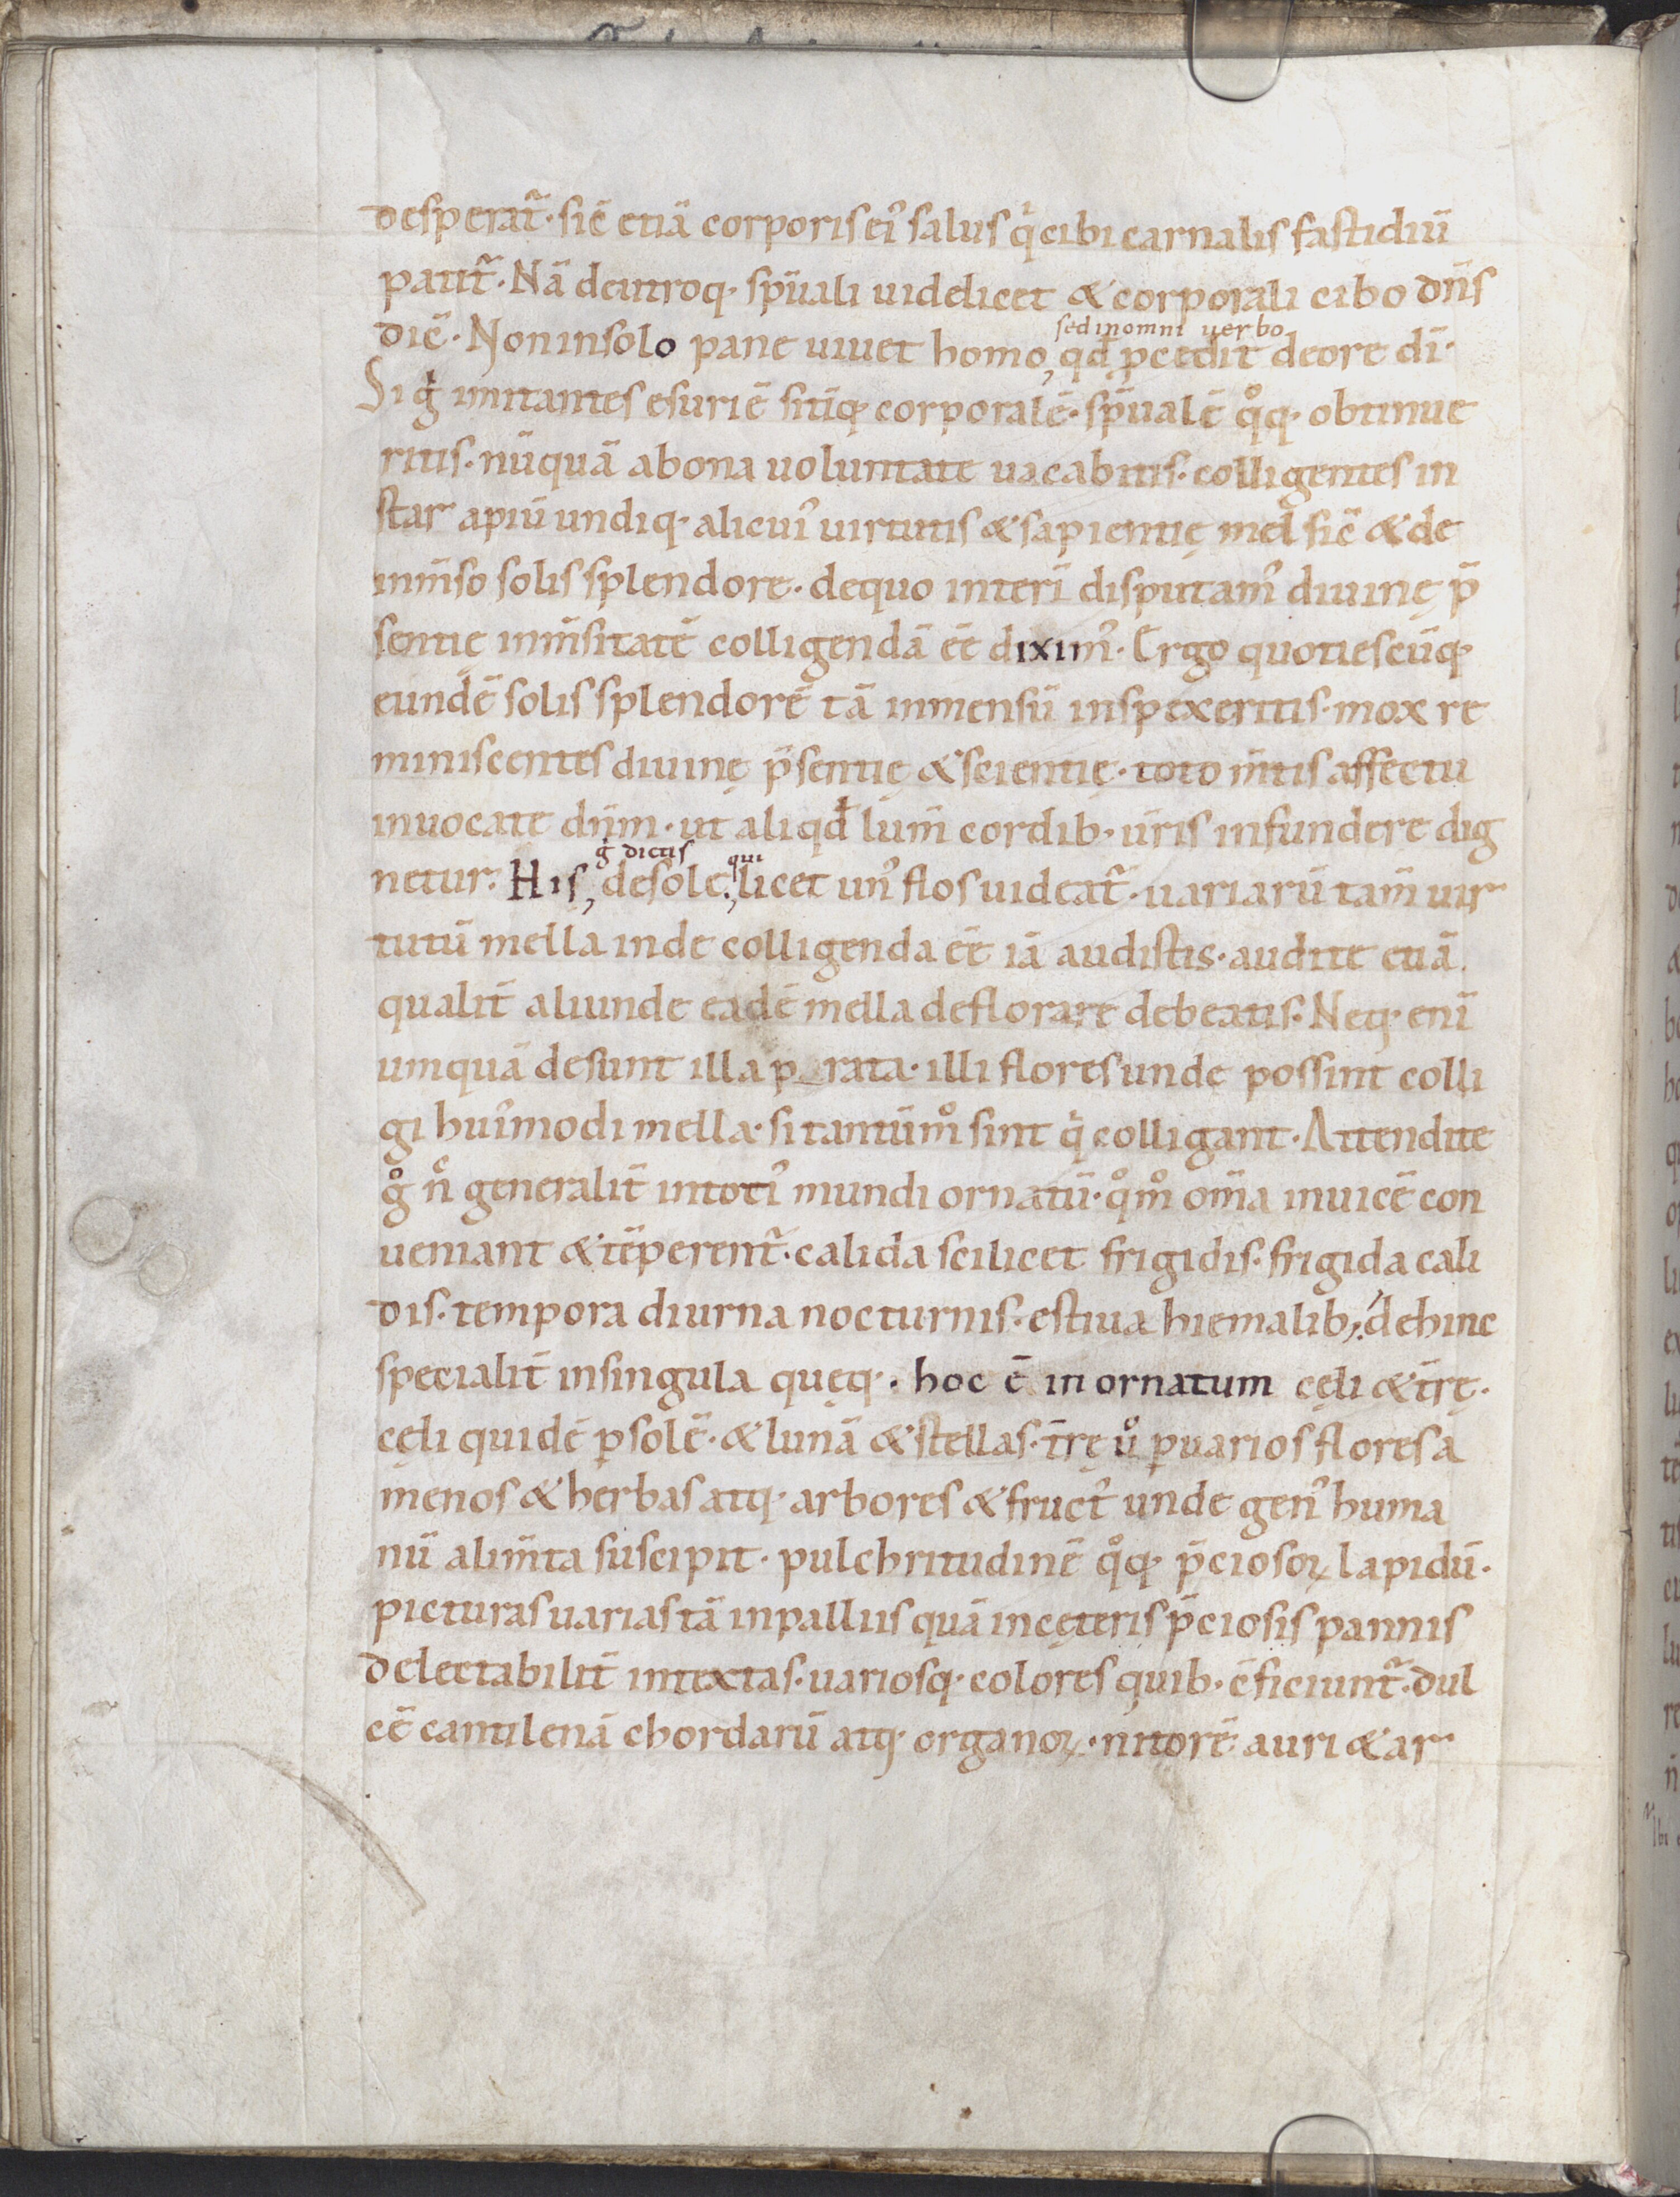 desperat̄. sic̄ etiā corporis eiꝰ salus qͥ cibi carnalis fastidiū
patit̄. Nā de utroq. sp̄uali uidelicet & corporali cibo dn̄s
dic̄. Non in solo pane uiuet homo, qd̄ ꝓcedit de ore dī.
sed in omni uerbo
Si gͥ imitantes esuriē sitīq. corporalē. sp̄ualē qͦq. obtinue
ritis. nūquā a bona uoluntate uacabitis. colligentes in
star apiū undiq. alicuiꝰ uirtutis & sapientię mel sic̄ & de
inm̄so solis splendore. de quo interī disputamꝰ diuinę p̄
sentię inm̄sitatē colligendā ēē diximꝰ. Ergo quotiescūq.
eundē solis splendorē tā inmensū inspexeritis. mox re
miniscentes diuinę p̄sentię & scientię. toto m̄tis affectu
inuocate dn̄m. ut aliqd̄ lum̄ cordib. ur̄is infundere dig
netur. His, de sole., licet unꝰ flos uideat̄. uariarū tam̄ uir
gͥ dictis qui
tutū mella inde colligenda ēē iā audistis. audite etiā
qualit̄ aliunde eadē mella deflorare debeatis. Neq. enī
umquā desunt illa p rata. illi flores unde possint colli
gi huiꝰmodi mella. si tantūmͦ sint qͥ colligant. Attendite
gͦ nͨ generalit̄ in totiꝰ mundi ornatū. qͦmͦ om̄ia inuicē con
ueniant & tēperent̄. calida scilicet frigidis. frigida cali
dis. tempora diurna nocturnis. estiua hiemalib;. dehinc
specialit̄ in singula quęq. . hoc ē in ornatum cęli & tr̄ę.
cęli quidē ꝑ solē. & lunā & stellas. tr̄ę uͦ ꝑ uarios flores a
menos & herbas atq. arbores & fructꝰ unde genꝰ huma
nū alim̄ta suscipit. pulchritudinē qͦq. p̄ciosoꝝ lapidū.
picturas uarias tā in palliis quā in cęteris p̄ciosis pannis
delectabilit̄ intextas. uariosq. colores quib. ēficiunt̄. dul
cē cantilenā chordarū atq. organoꝝ. nitorē auri & ar